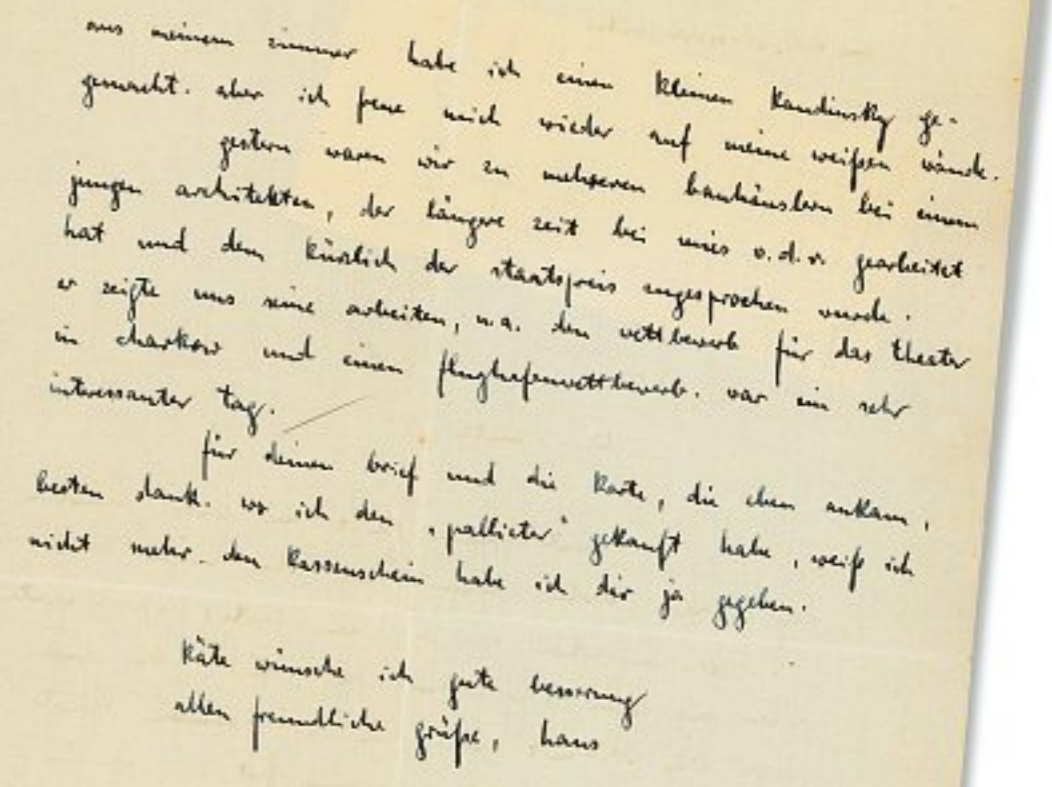 aus meinem zimmer habe ich einen kleinen Kandinsky ge-
gemacht. aber ich freue mich wieder auf meine weißen wände.
gestern waren wir zu mehreren bauhäuslern bei einem
jungen architekten, der längere zeit bei mies v.d.r. gearbeitet
hat und dem kürzlich der staatspreis zugesprochen wurde.
er zeigte uns seine arbeiten, u.a. den wettbewerb für das theater
in charkow und einen flughafenwettbewerb. war ein sehr
interessanter tag.
für deinen brief und die karte, die eben ankam,
besten dank. wo ich den „pallieter“ gekauft habe, weiß ich
nicht mehr. den kassenschein habe ich dir ja gegeben.
käte wünsche ich gute besserung
allen freundliche grüße, hans